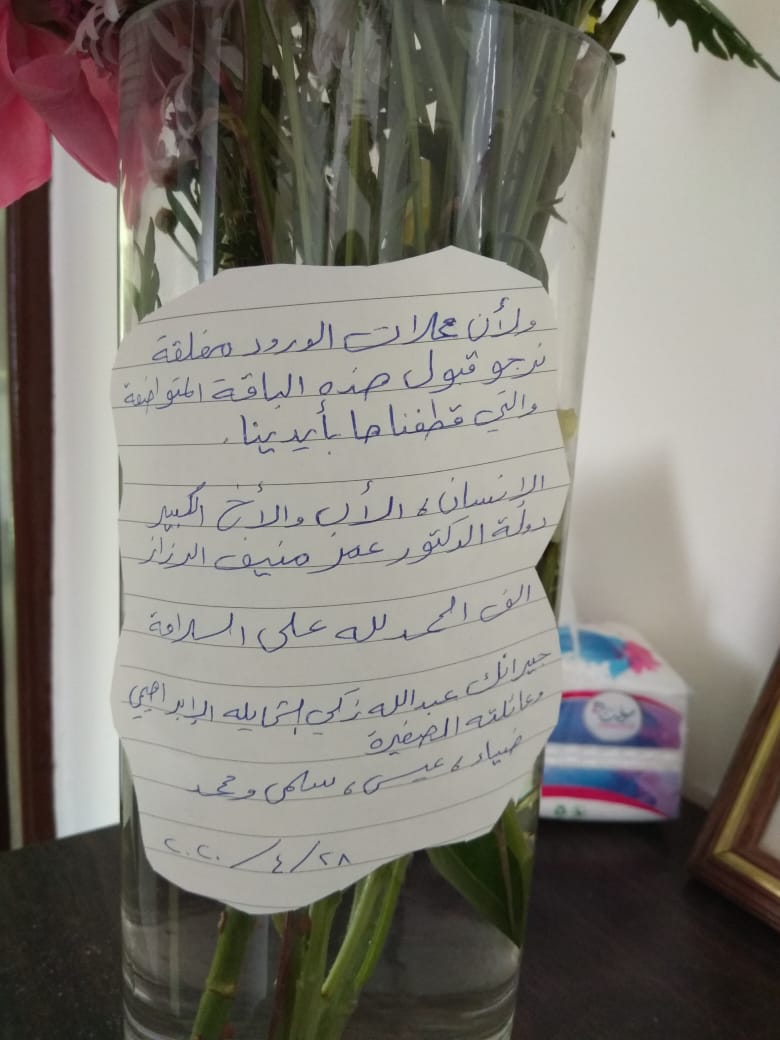 ولأن محلات الورود مغلقة
نرجو قبول هذه الباقة المتواضعة
والتي قطفناها بأيدينا.
الإنسان، الأب والأخ الكبير
دولة الدكتور عمر منيف الرزاز
الف الحمد لله على السلامة
جيرانك عبدالله زكي الشمايله الإبراهيمي
وعائلته الصغيرة
ضياء، عيسى، سلمى ومحمد
٢٨/٤/٢٠٢٠